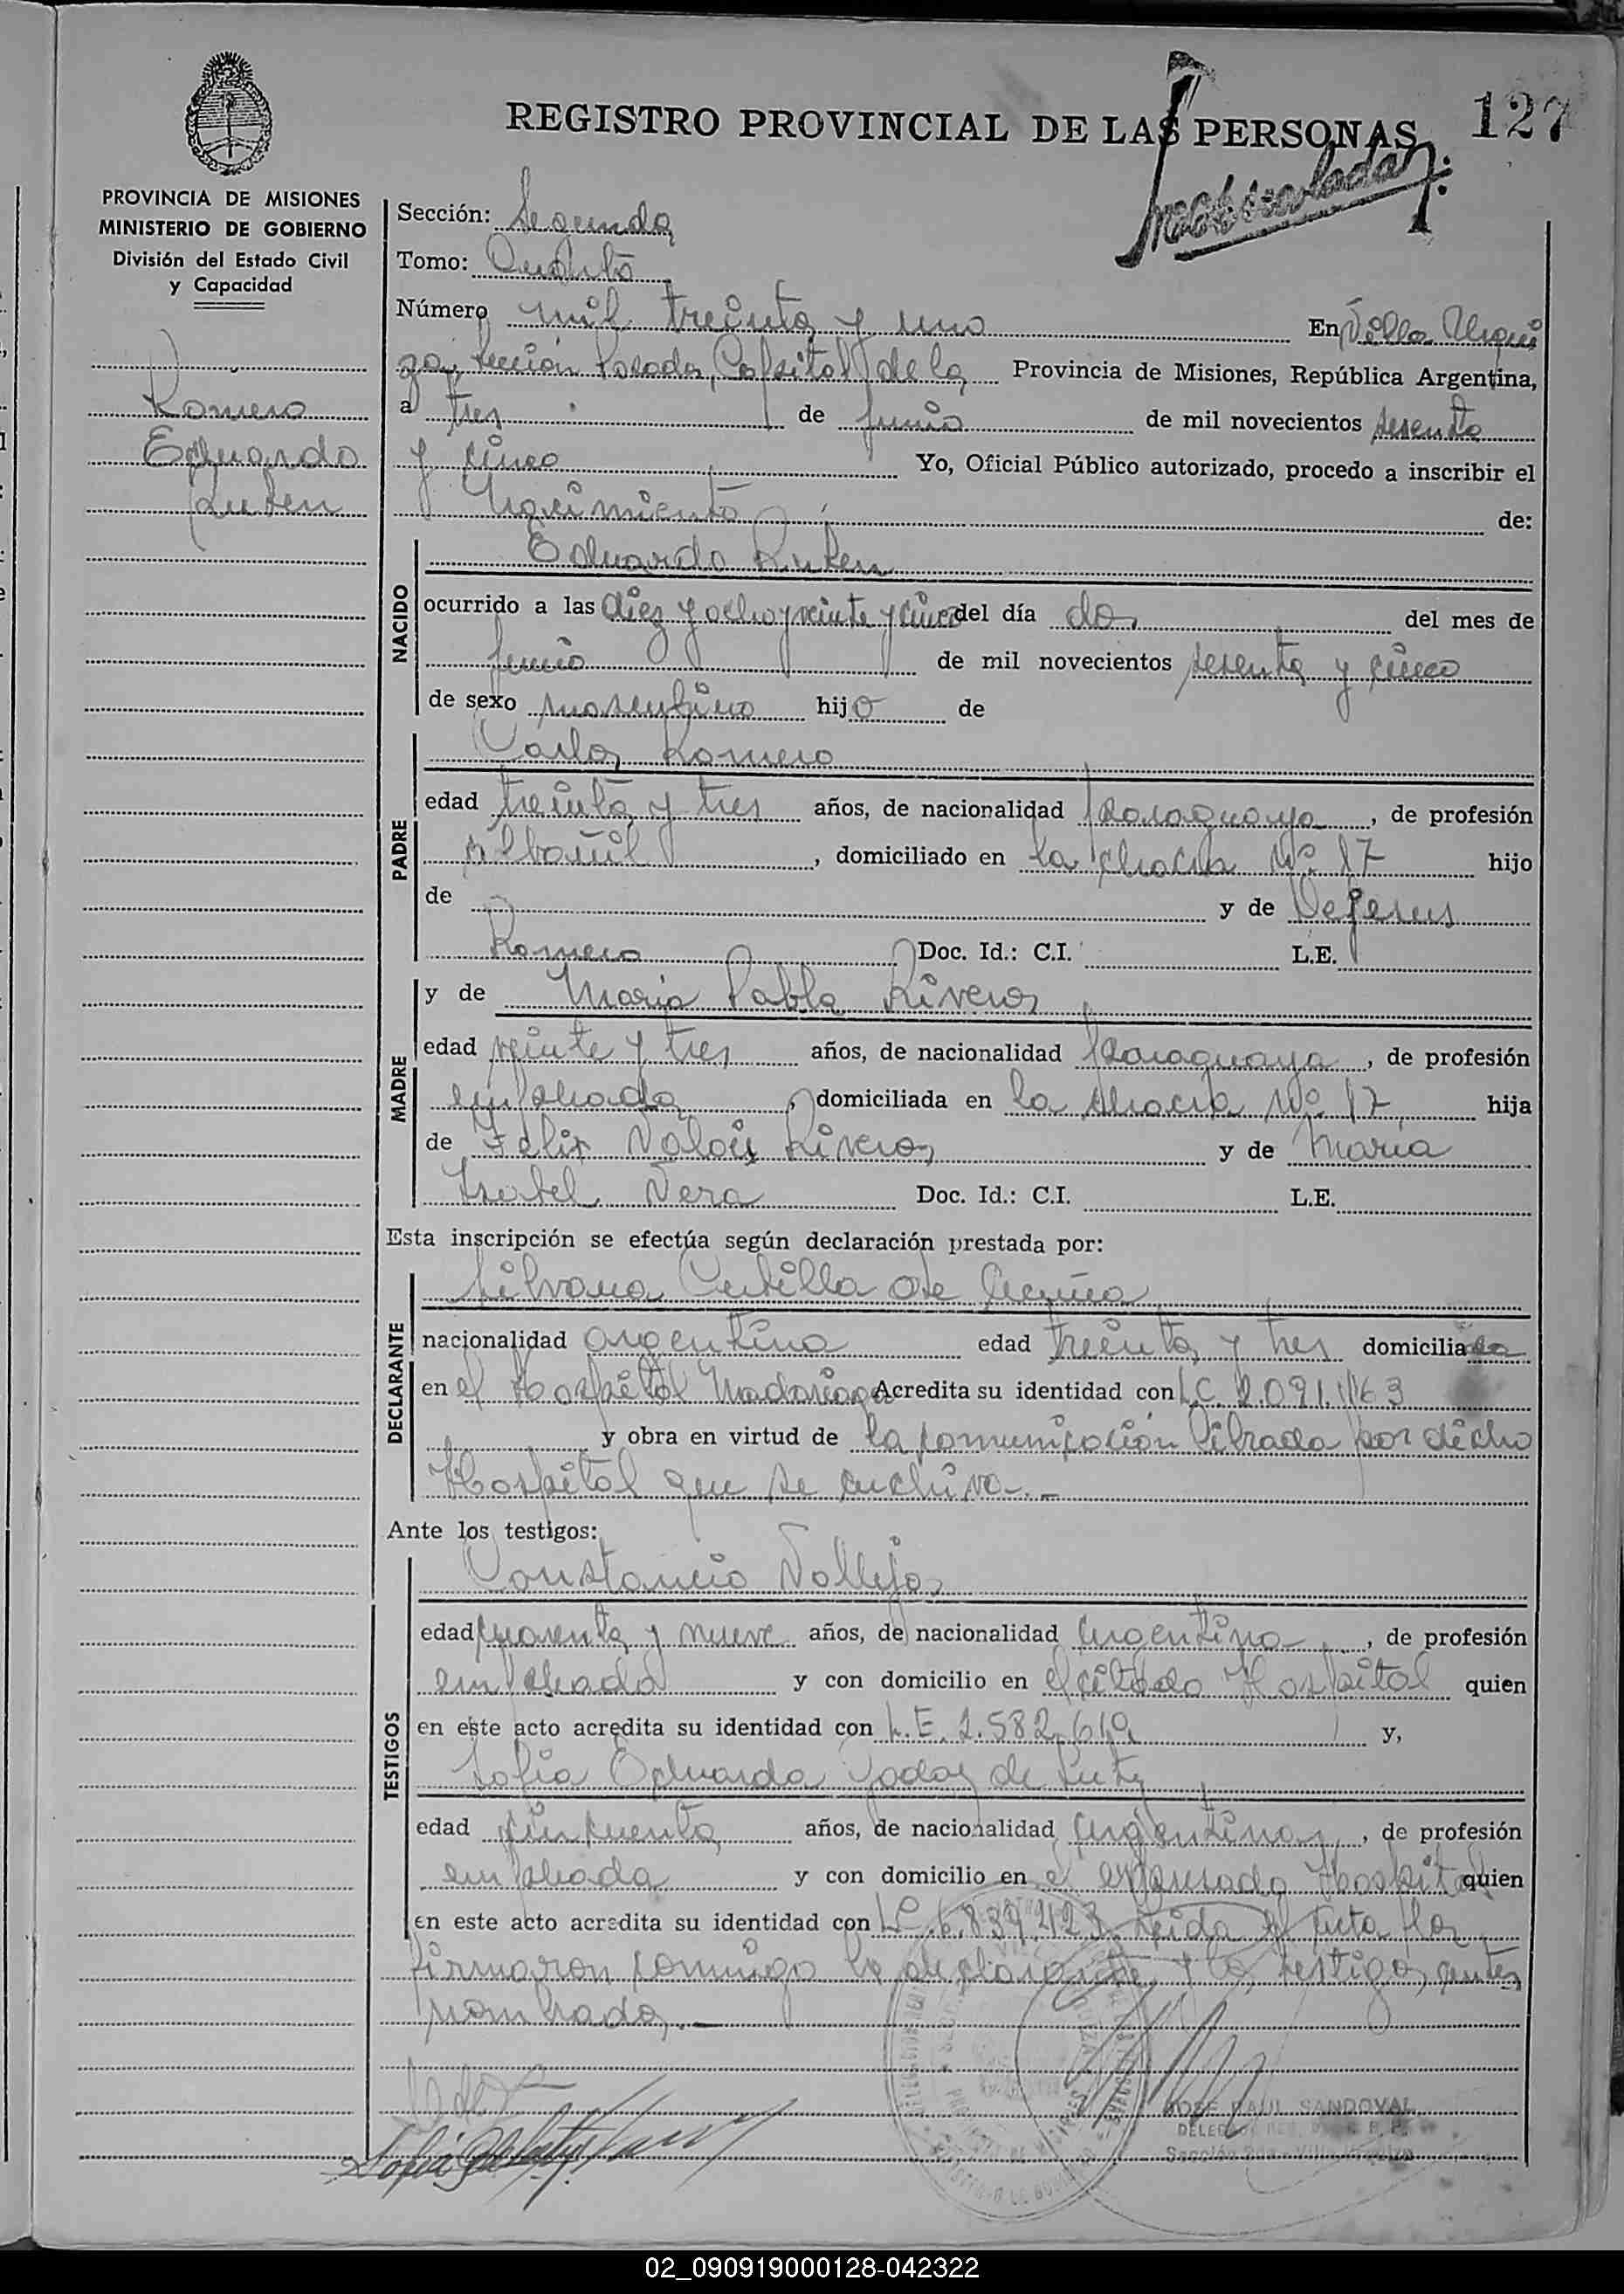 REGISTRO PROVINCIAL DE LAS PERSONAS
127
Matriculado
PROVINCIA DE MISIONES
MINISTERIO DE GOBIERNO
División del Estado Civil
y Capacidad
Romero
Eduardo
Ruben
Sección: Segunda
Tomo: Quinto
Número mil treinta y uno En Villa Urqui
za, Sección Posadas, Capital de la Provincia de Misiones, República Argentina,
a tres de junio de mil novecientos sesenta
y cinco Yo, Oficial Público autorizado, procedo a inscribir el
Nacimiento de:
NACIDO
Eduardo Ruben
ocurrido a las diez y ocho y veinte y cinco del día dos del mes de
junio de mil novecientos sesenta y cinco
de sexo masculino hijo de
PADRE
Carlos Romero
edad treinta y tres años, de nacionalidad paraguaya, de profesión
albañil, domiciliado en la chacra Nº 17 hijo
de y de
Romero Doc. Id.: C.I. L.E.
MADRE
y de María Pabla Riveros
edad veinte y tres años, de nacionalidad paraguaya, de profesión
empleada, domiciliada en la chacra Nº 17 hija
de Felix Valois Riveros y de María
Isabel Vera Doc. Id.: C.I. L.E.
Esta inscripción se efectúa según declaración prestada por:
DECLARANTE
Silvana de Acuña
nacionalidad argentina edad treinta y tres domiciliada
en el Hospital Madariaga Acredita su identidad con L.C. 2.091.163
y obra en virtud de la comunicación librada por dicho
Hospital que se archiva.-
Ante los testigos:
TESTIGOS
Constancio Vallejos
edad cuarenta y nueve años, de nacionalidad argentina, de profesión
empleado y con domicilio en el citado Hospital quien
en este acto acredita su identidad con L.E. 2.582.619 y,
Sofía Eduarda Godoy de
edad cincuenta años, de nacionalidad argentina, de profesión
empleada y con domicilio en el expresado Hospital quien
en este acto acredita su identidad con L.C. 6.839.423. Leida el acta la
firmaron conmigo la declarante y los testigos antes
nombrados.-
JOSE RAUL SANDOVAL
02_090919000128-042322